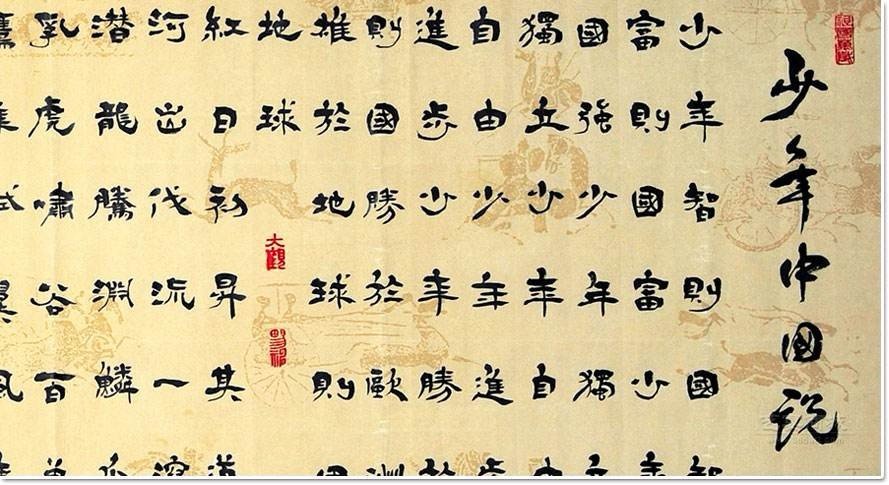 少年中国说
少年智則國智
富則國富少年
國強少年獨立
獨立少年自由
自由少年進步
進步少年勝於
則國勝於歐洲
雄於地球則國
地球
紅日初昇其道
河出伏流一瀉
潛龍騰淵鱗爪
乳虎嘯谷百獸
鷹隼試翼風